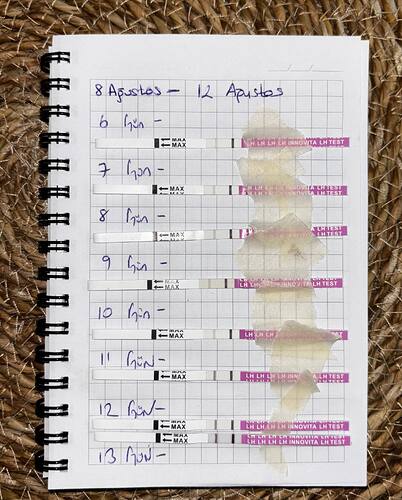 8 Agustos - 12 Agustos
6 Gün -
← MAX
← MAX
LH LH LH INNOVITA LH TEST
7 Gün -
← MAX
← MAX
LH LH LH LH INNOVITA LH TEST
8 Gün -
← MAX
← MAX
LH TEST
LH TEST
9 Gün -
← MAX
← MAX
LH LH LH LH INNOVITA LH TEST
10 Gün -
← MAX
← MAX
LH LH LH LH INNOVITA LH TEST
11 Gün -
← MAX
← MAX
LH LH LH LH INNOVITA LH TEST
12 Gün -
← MAX
← MAX
LH LH LH LH INNOVITA LH TEST
← MAX
← MAX
LH LH LH LH INNOVITA LH TEST
13 Gün -